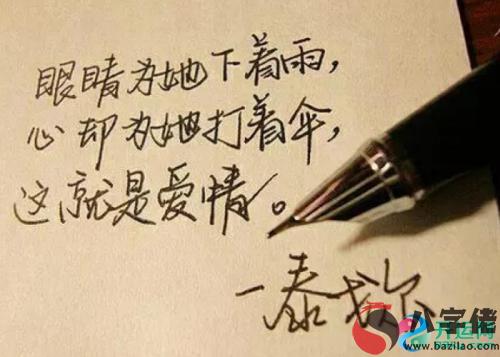 眼睛为她下着雨，
心却为她打着伞，
这就是爱情。
一泰戈尔
八字佬
开运网
www.bazilao.com